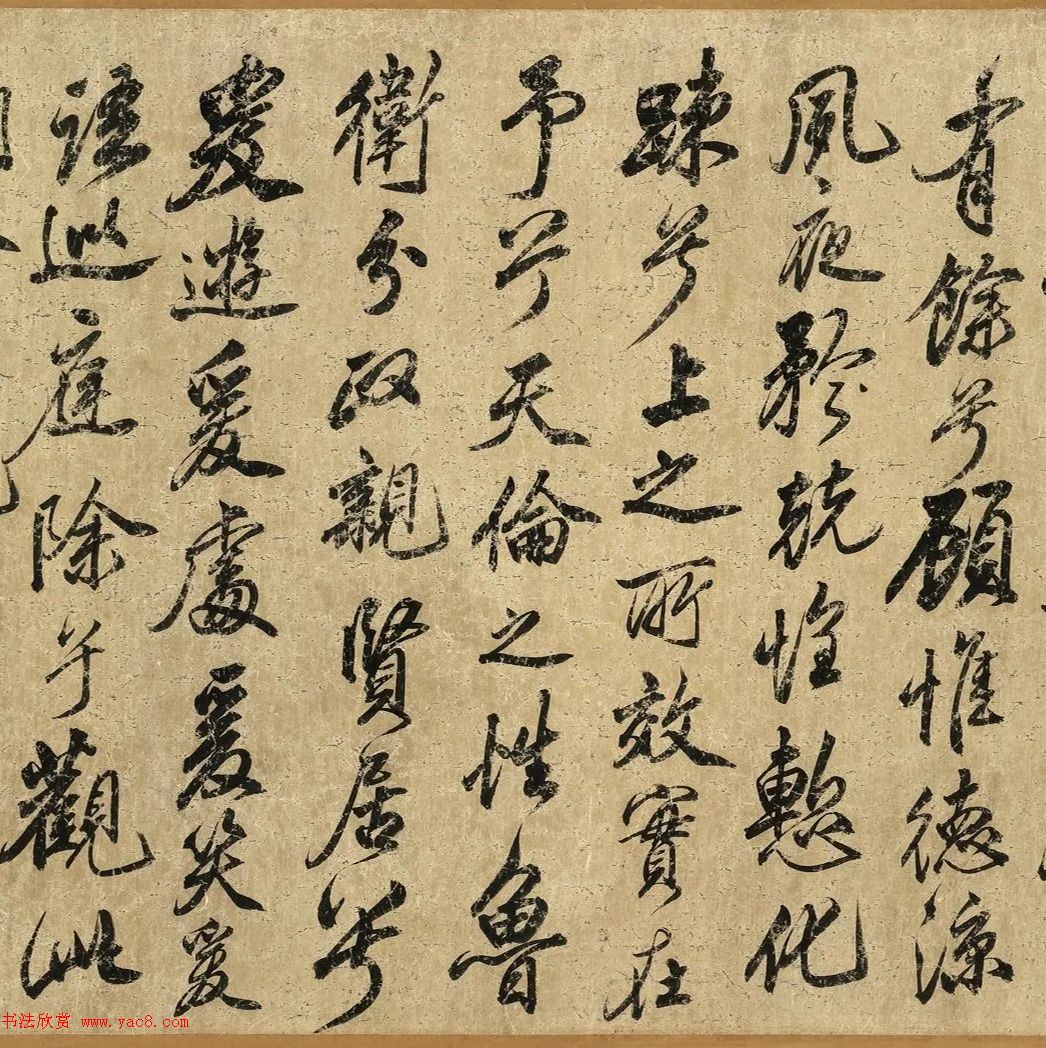 有餘兮顧惟德涼
夙夜矜兢惶慙化
踈兮上之所效實在
予兮天倫之性魯
衛分政親賢居兮
爰遊爰處爰笑爰
語巡庭除兮觀此
书法欣赏 www.yac8.com